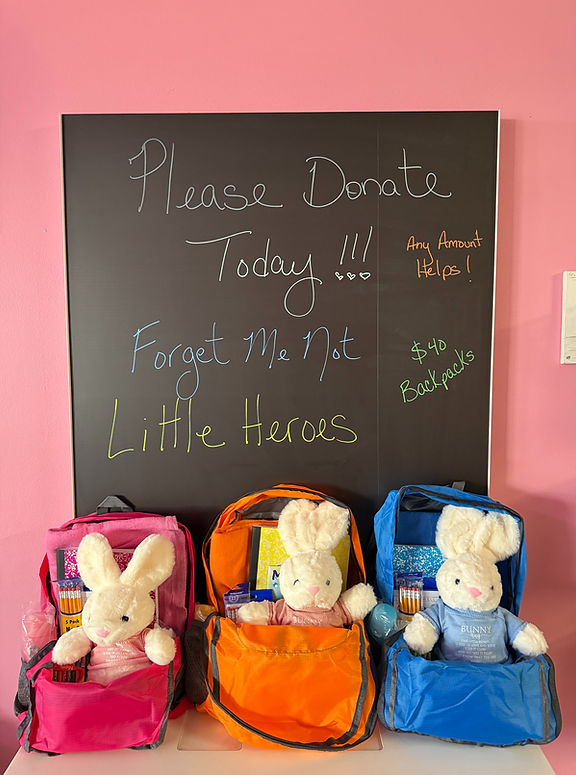 Please Donate
Today !!!
Any Amount
Helps!
Forget Me Not
$40
Backpacks
Little Heroes
BUNNY